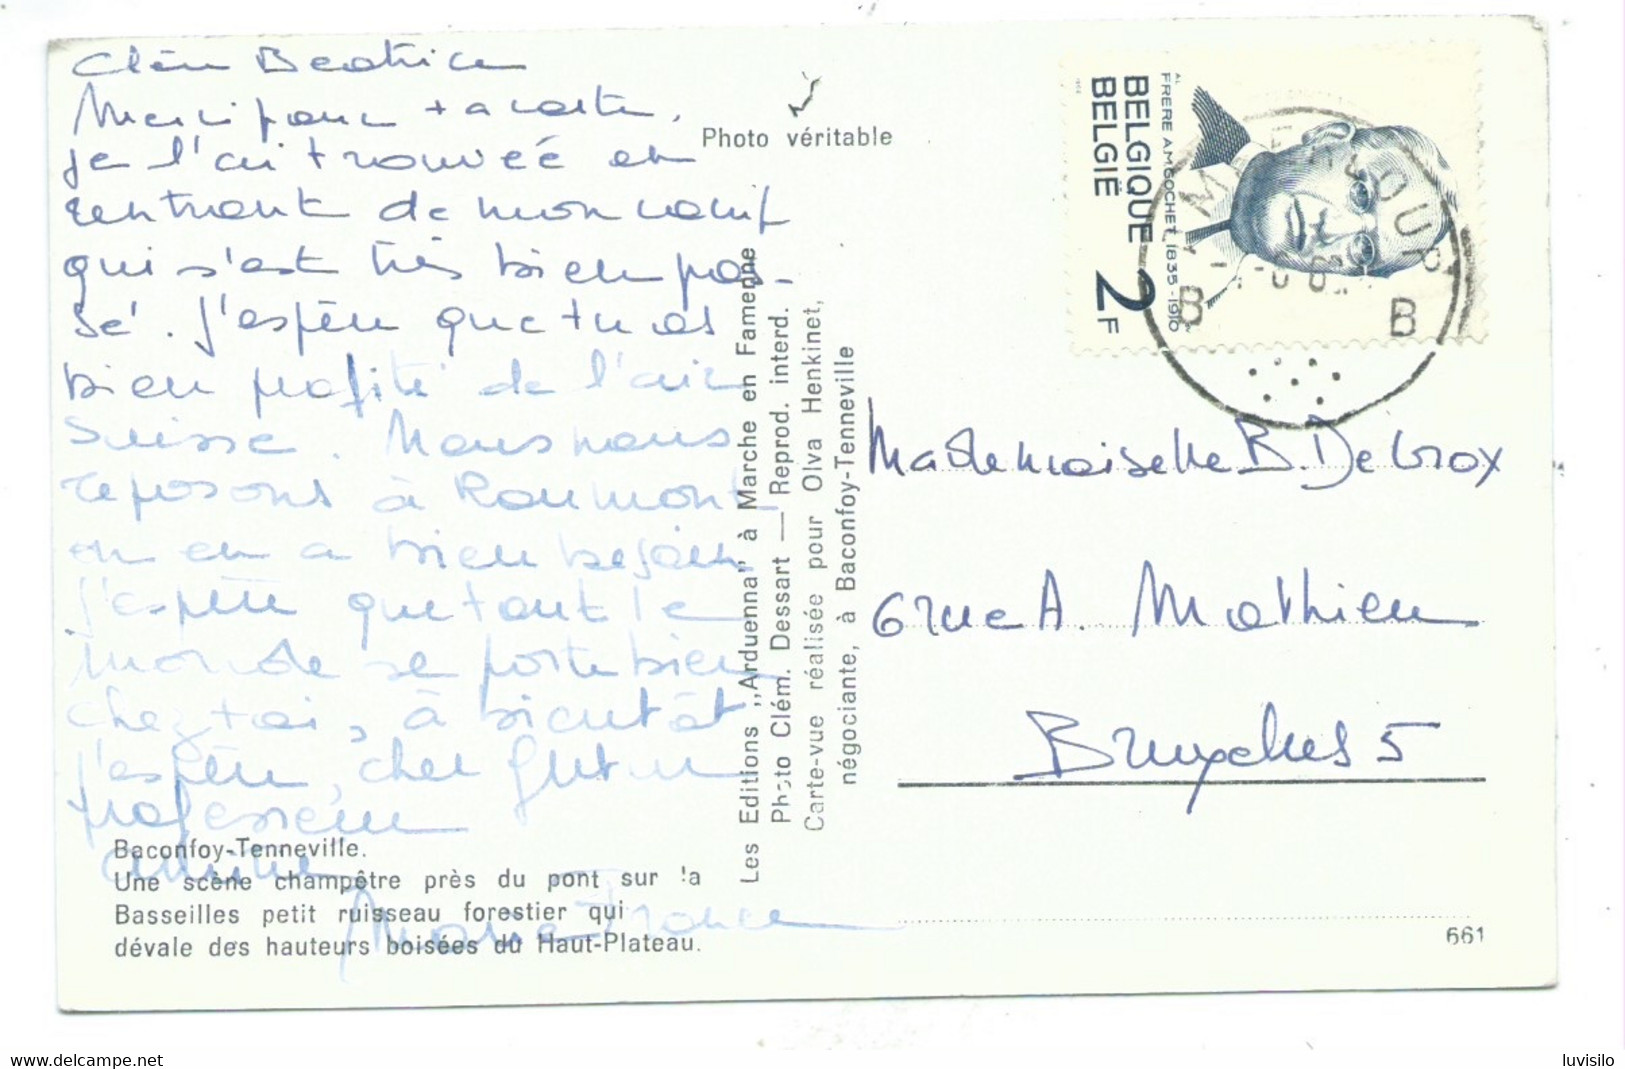 Chère Beatrice
Merci pour ta carte,
je l'ai trouvéé en
rentrant de mon camp
qui s'est très bien pas-
sé. J'espère que tu as
bien profité de l'air
Suisse. Nous nous
reposons à Roumont
on en a bien besoin
j'espère que tout le
monde se porte bien
chez toi, à bientôt
j'espère, cher futur
professeur
Marie France
Baconfoy-Tenneville.
Une scène champêtre près du pont sur la
Basseilles petit ruisseau forestier qui
dévale des hauteurs boisées du Haut-Plateau.
Les Editions ,,Arduenna" à Marche en Famenne
Photo Clém. Dessart — Reprod. interd.
Carte-vue réalisée pour Olva Henkinet,
négociante, à Baconfoy-Tenneville
Photo véritable
BELGIQUE
BELGIË
2F
FRERE A.M.GOCHET, 1835-1910
B B
Mademoiselle B. Delcrox
6 rue A. Mathieu
Bruxelles 5
661
www.delcampe.net
luvisilo